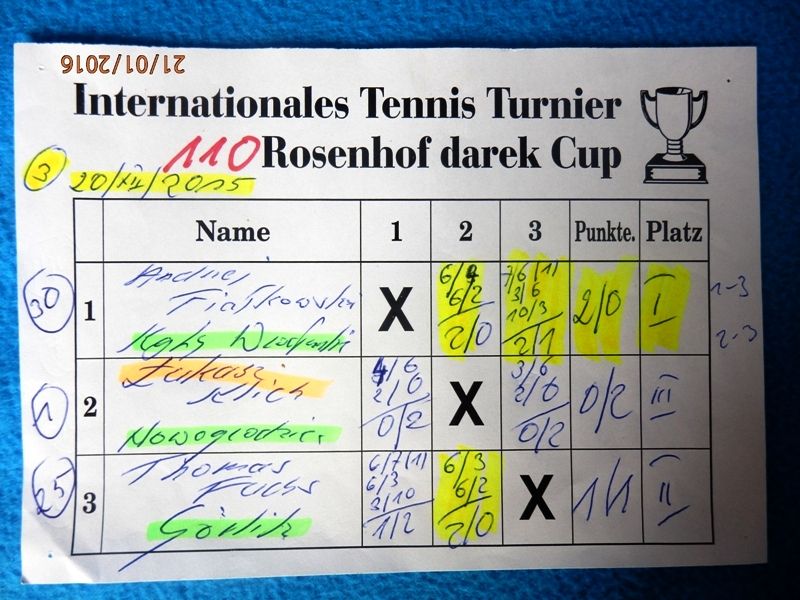 21/01/2016
Internationales Tennis Turnier
110 Rosenhof darek Cup
3 20/XII/2015
Name 1 2 3 Punkte. Platz
30 1 Andrzej Fiałkowski Kąty X 6/4 6/2 2/0 7/6(1) 3/6 10/3 2/1 2/0 I 1-3
2-3
1 2 Łukasz Klich X 4/6 2/6 0/2 3/6 2/6 0/2 0/2 III
25 3 Thomas Fuchs Görlitz 6/7(1) 6/3 3/10 1/2 6/3 6/2 2/0 X 1/1 II